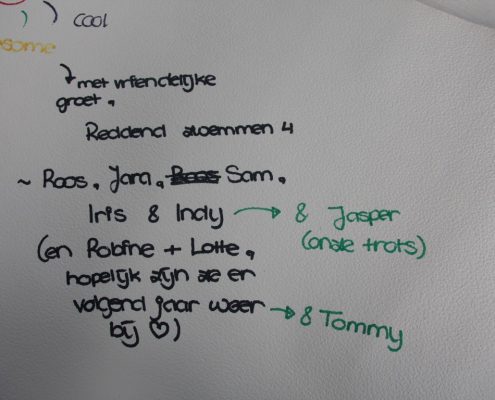 cool
some
met vriendelijke
groet,
Reddend zwemmen 4
~ Roos, Jara, Roos Sam,
Iris & Indy → & Jasper
(en Robine + Lotte, (onze trots)
hopelijk zijn ze er
volgend jaar weer → & Tommy
bij ♡)